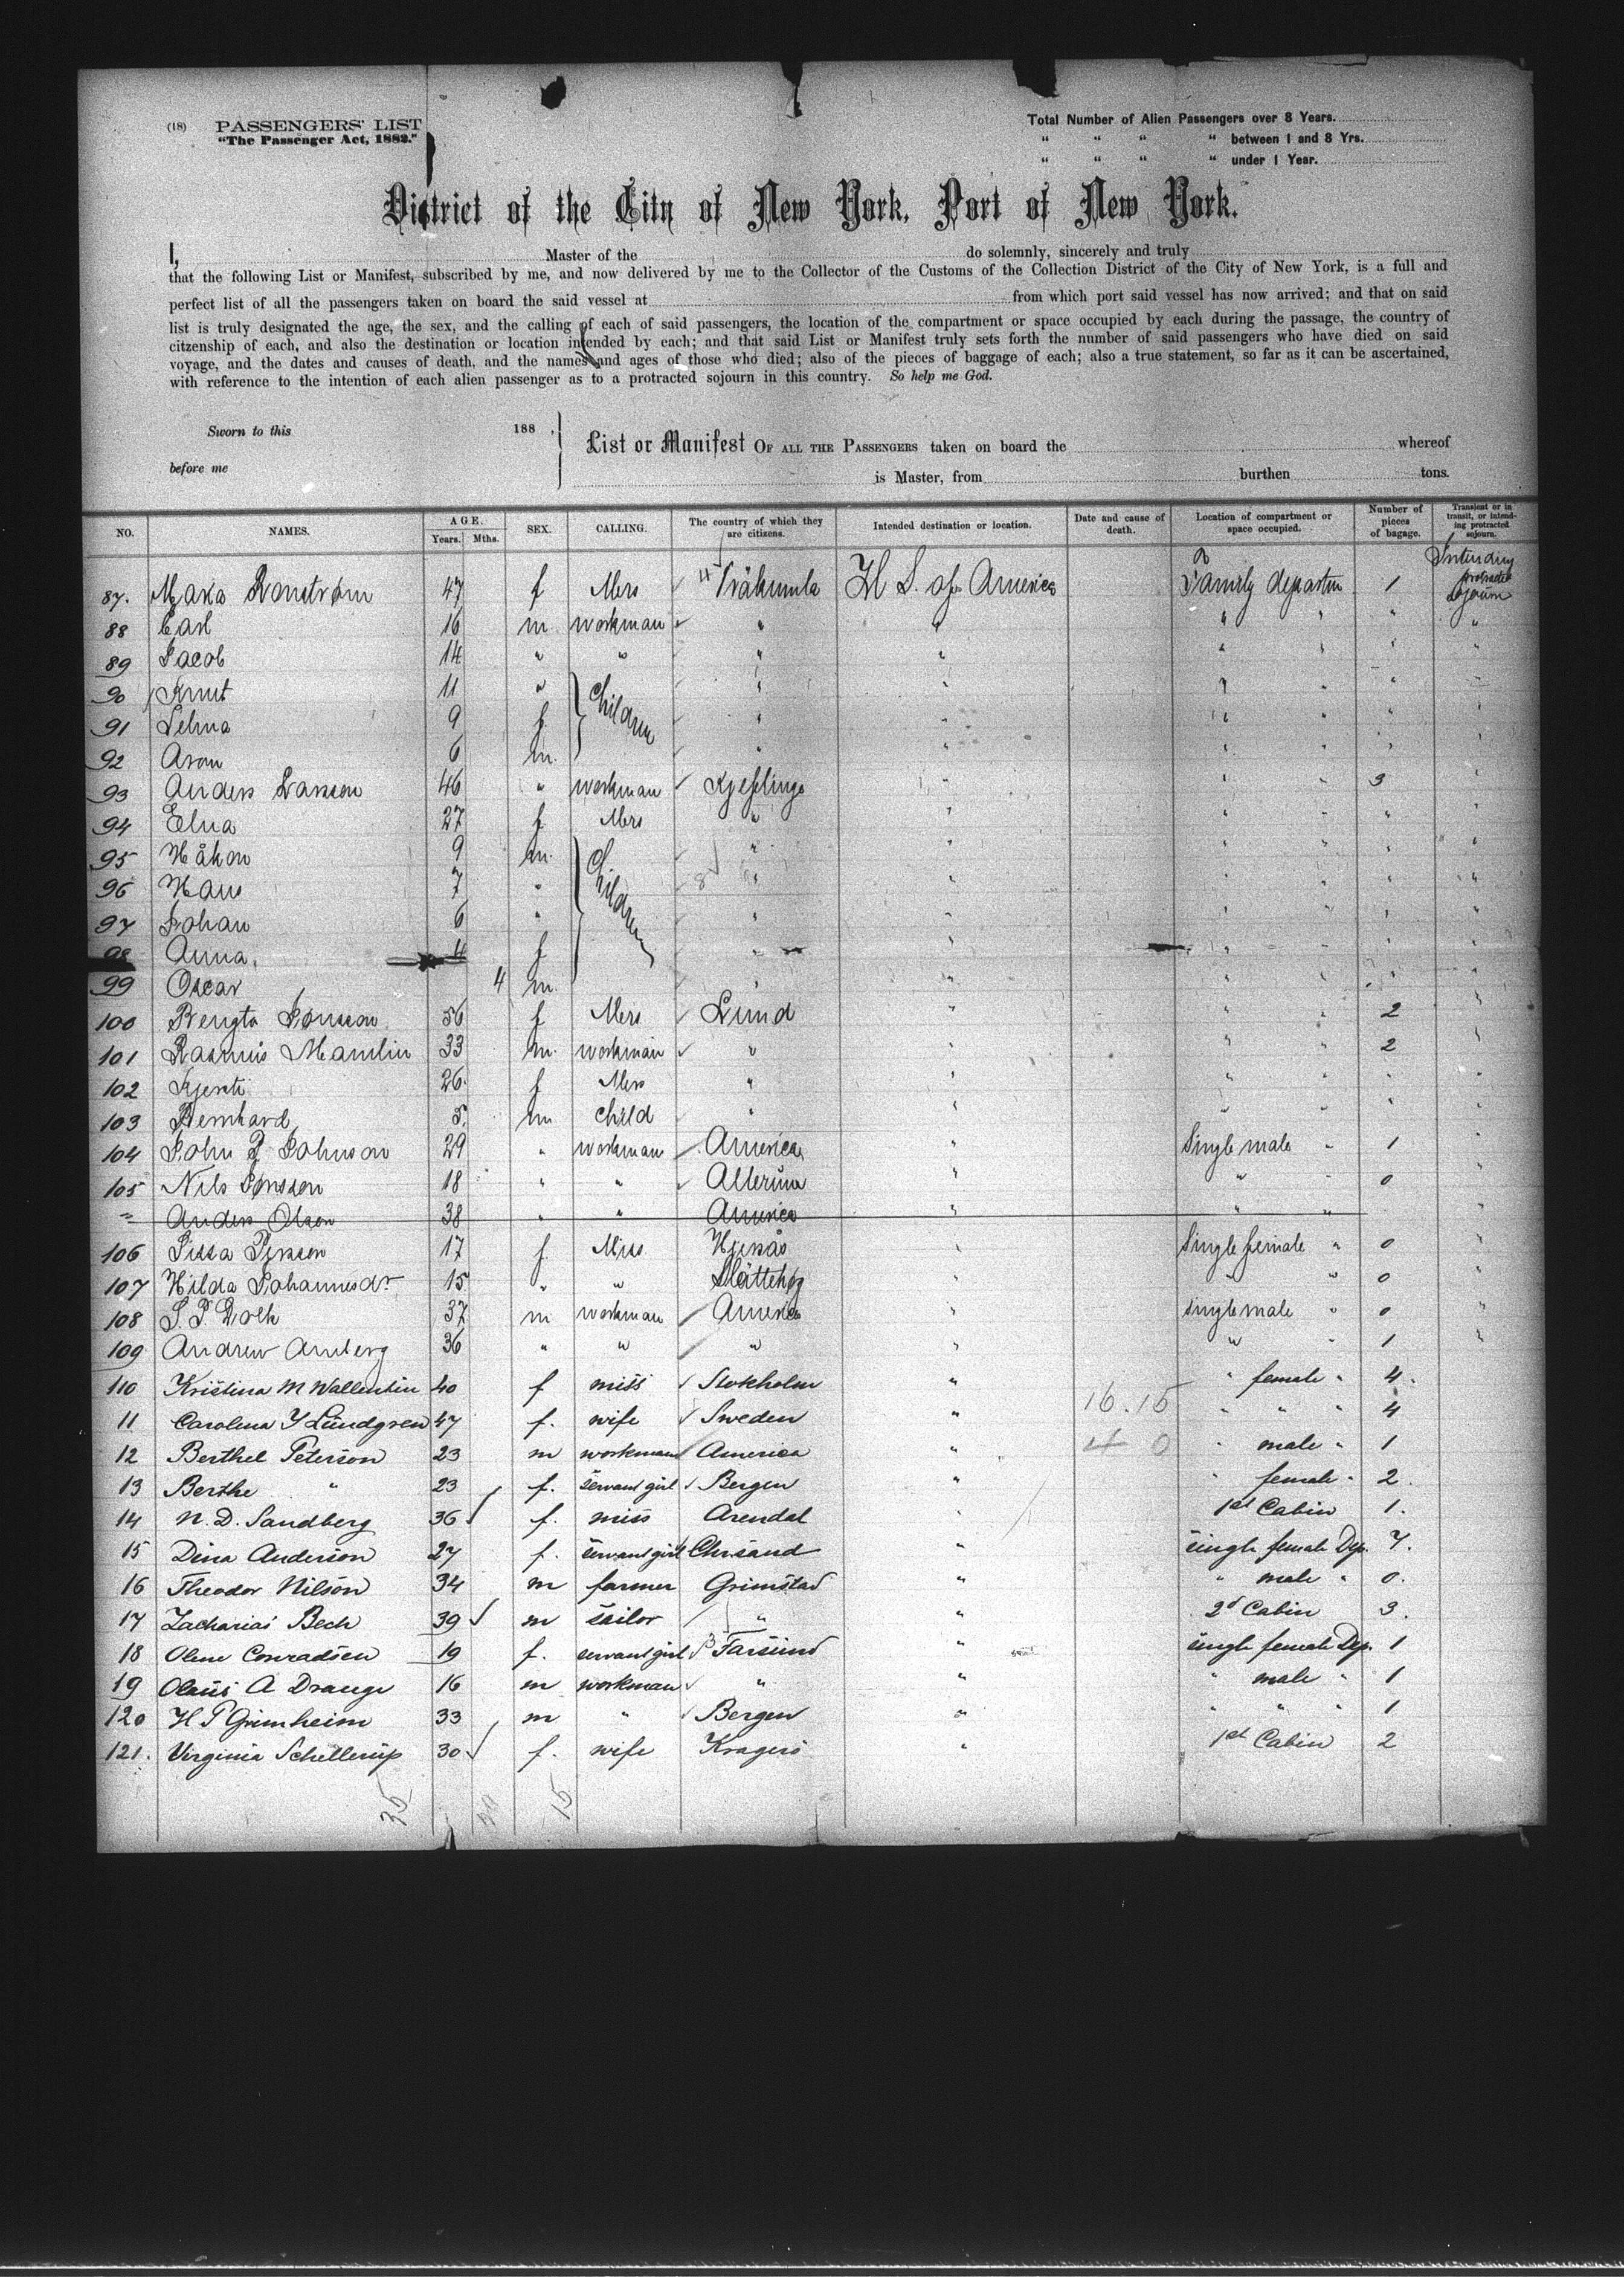 (18) PASSENGERS' LIST
"The Passenger Act, 1882."
Total Number of Alien Passengers over 8 Years.
" " " " between 1 and 8 Yrs.
" " " " under 1 Year.
District of the City of New York, Port of New York.
I, Master of the do solemnly, sincerely and truly
that the following List or Manifest, subscribed by me, and now delivered by me to the Collector of the Customs of the Collection District of the City of New York, is a full and
perfect list of all the passengers taken on board the said vessel at from which port said vessel has now arrived; and that on said
list is truly designated the age, the sex, and the calling of each of said passengers, the location of the compartment or space occupied by each during the passage, the country of
citzenship of each, and also the destination or location intended by each; and that said List or Manifest truly sets forth the number of said passengers who have died on said
voyage, and the dates and causes of death, and the names and ages of those who died; also of the pieces of baggage of each; also a true statement, so far as it can be ascertained,
with reference to the intention of each alien passenger as to a protracted sojourn in this country. So help me God.
Sworn to this 188 ,
before me
List or Manifest OF ALL THE PASSENGERS taken on board the whereof
is Master, from burthen tons.
NO. NAMES. AGE. Years. Mths. SEX. CALLING. The country of which they are citizens. Intended destination or location. Date and cause of death. Location of compartment or space occupied. Number of pieces of bagage. Transient or in transit, or intending protracted sojourn.
87. 47 f Mrs of America Family 1 Intending protracted sojourn
88 Carl 16 m workman " " " " " "
89 Jacob 14 " " " " " " " "
90 Knut 11 " Children " " " " " "
91 Selma 9 f " " " " " "
92 Aron 6 m. " " " " " "
93 Anders Larsson 46 " workman " " " 3 "
94 Elna 27 f Mrs " " " " " "
95 Håkon 9 m. Children " " " " " "
96 Hans 7 " " " " " " "
97 Johan 6 " " " " " " "
98 Anna 4 f " " " " " "
99 Oscar 4 m. " " " " " "
100 Bengta Jönsson 56 f Mrs Lund " " " 2 "
101 Rasmus Mamlin 33 m. workman " " " " 2 "
102 Kjersti 26 f Mrs " " " " " "
103 Bernhard 5 m child " " " " " "
104 John P Johnson 29 " workman America " Single male " 1 "
105 Nils Jönsson 18 " " " " " 0 "
" Anders Olson 38 " " America " " " "
106 Sissa Persson 17 f Miss " Single female " 0 "
107 Hilda Johannesdr 15 " " " " " 0 "
108 37 m workman America " Single male " 0 "
109 Andrew 36 " " " " " " 1 "
110 Kristina M Wallentin 40 f miss Stokholm " " female " 4.
11 Carolina Lundgren 47 f. wife Sweden " 16.15 " " " 4
12 Berthel Peterson 23 m workman America " 4 0 " male " 1
13 Berthe " 23 f. servant girl Bergen " " female " 2.
14 N. D. Sandberg 36 f. miss Arendal " 1st Cabin 1.
15 Dina Anderson 27 f. servant girl Chrsand " single female Dep. 7.
16 Theodor Nilson 34 m farmer Grimstad " " male " 0.
17 Zacharias Bech 39 m sailor " " 2d Cabin 3.
18 Olene Conradsen 19 f. servant girl Farsund " single female Dep. 1
19 Olaus A Drange 16 m workman " " " male " 1
120 H P Grimheim 33 m " Bergen " " " " 1
121. Virginia Schellerup 30 f. wife Kragerö " 1st Cabin 2
35 15